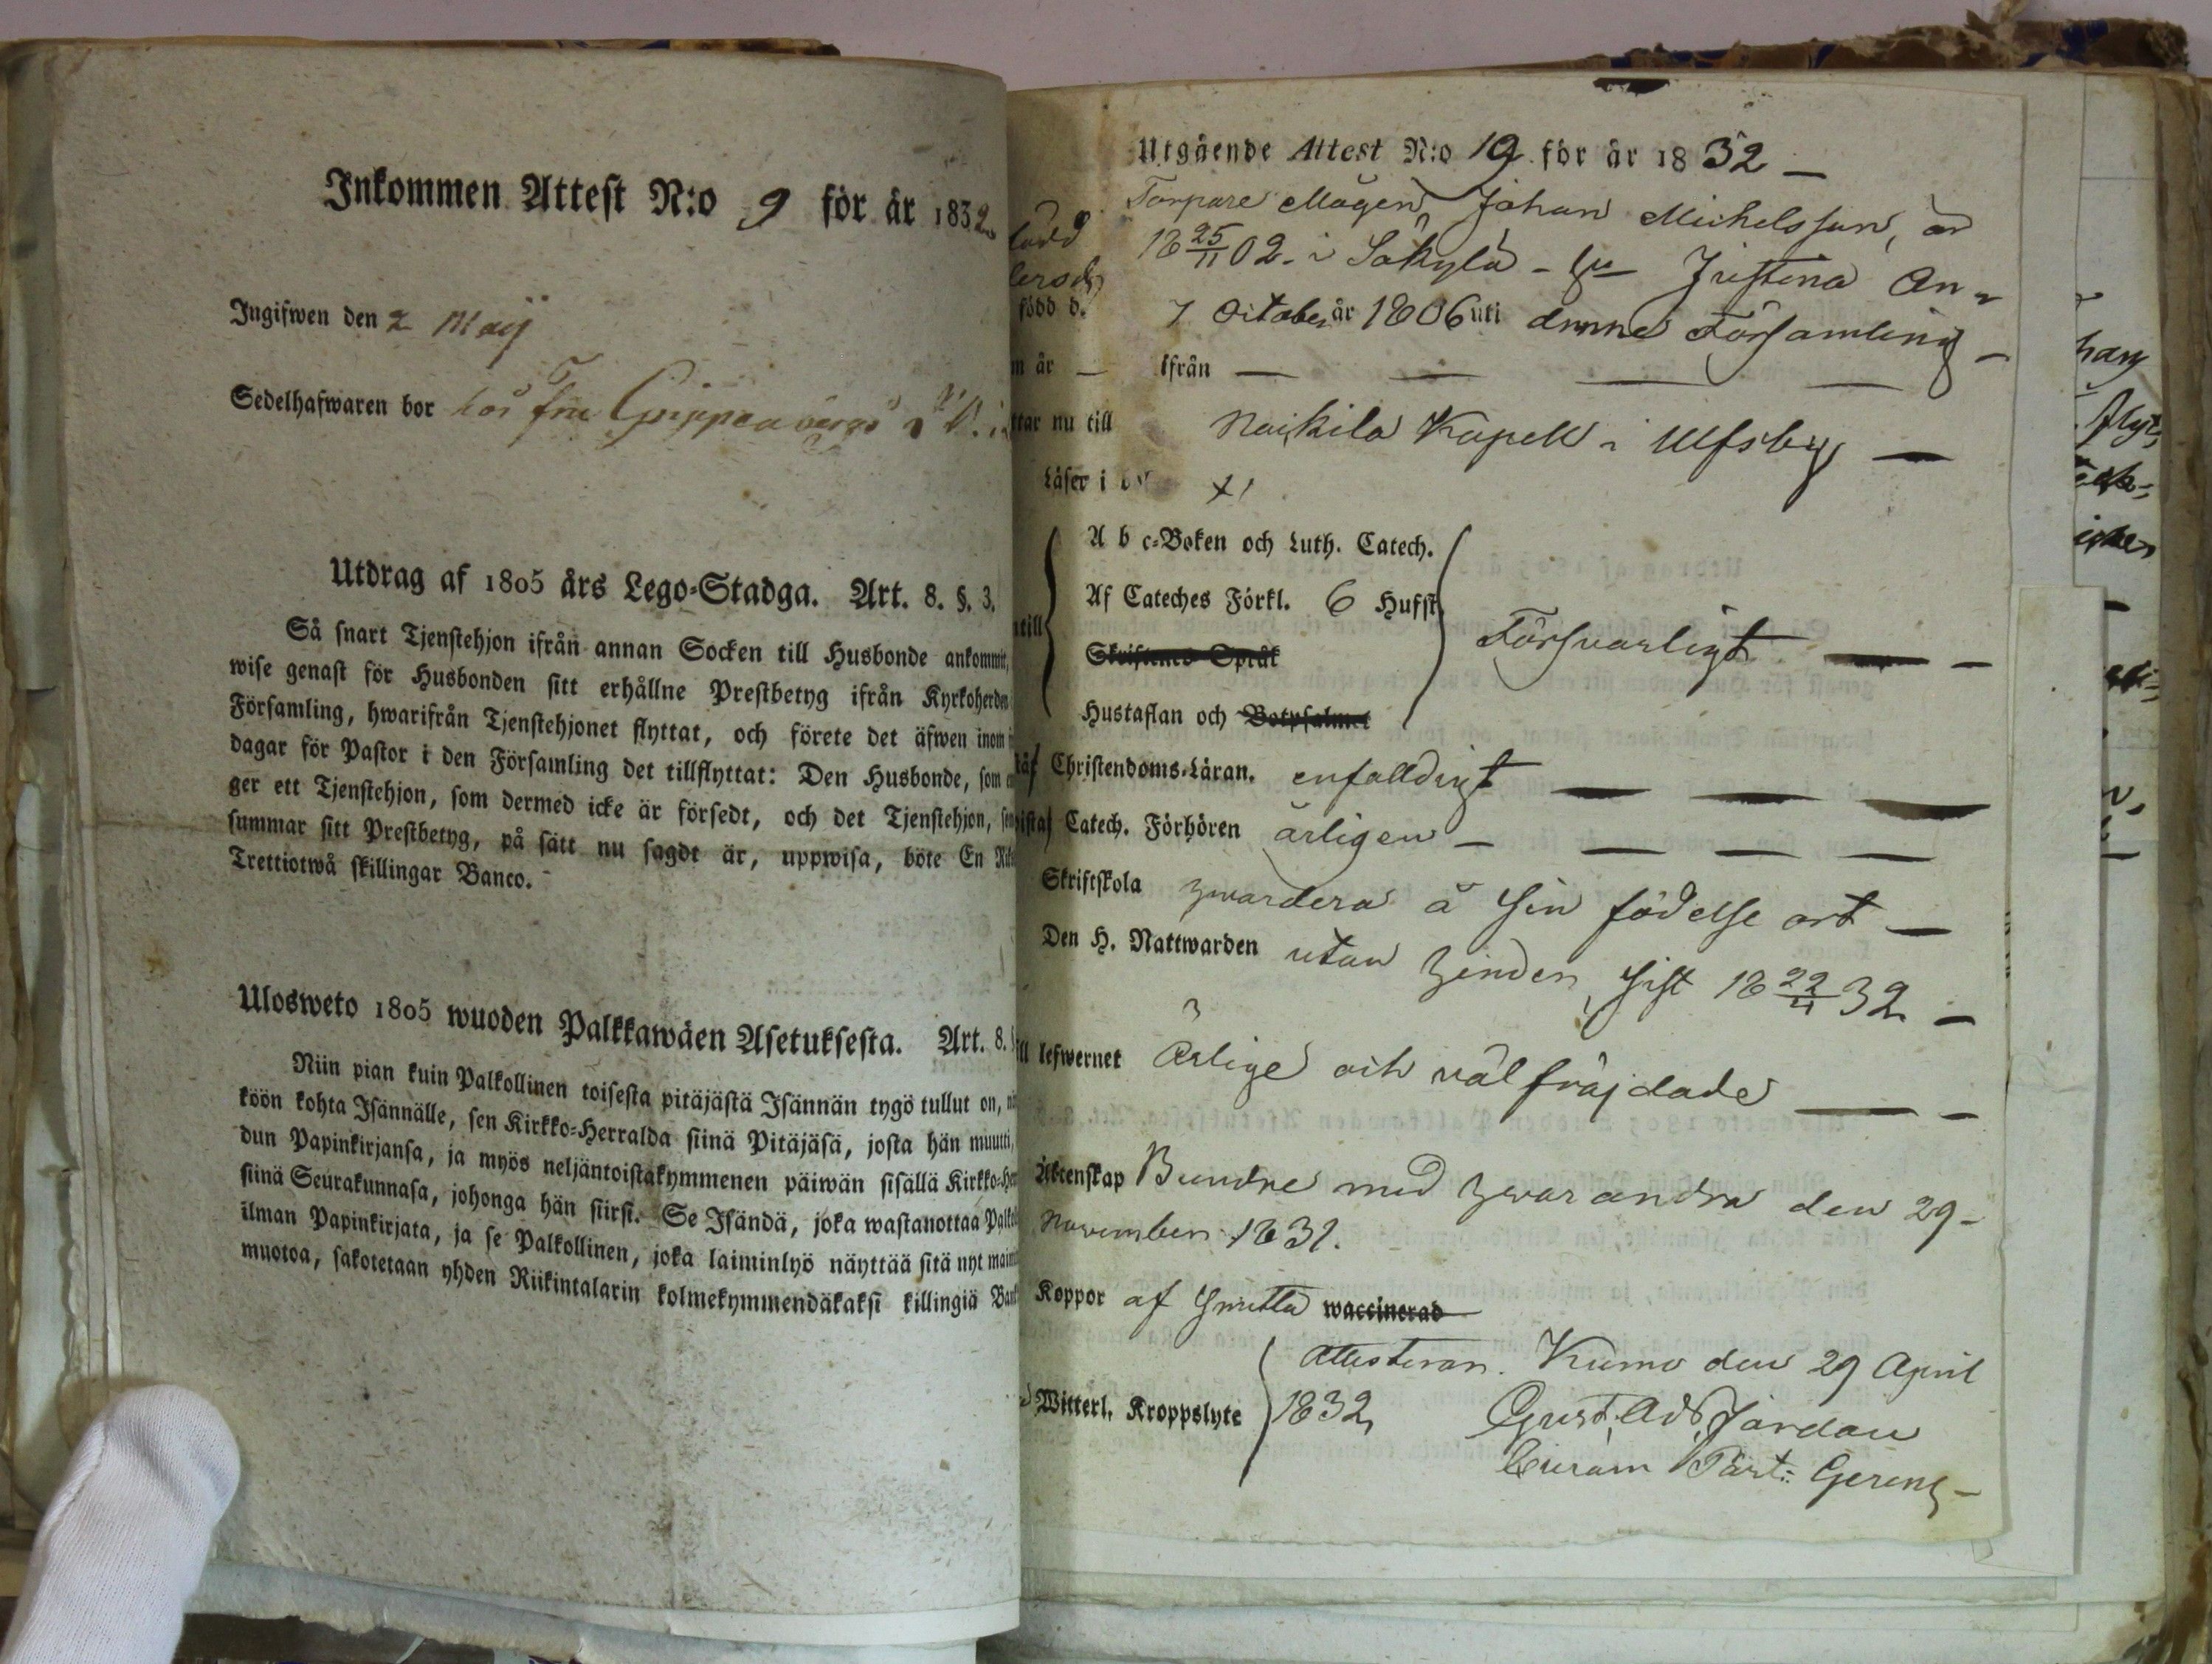 Inkommen Attest N:o 9 för år 1832
Ingifwen den 2 Maij
Sedelhafwaren bor hos fru
Utdrag af 1805 års Lego-Stadga. Art. 8. §. 3.
Så snart Tjenstehjon ifrån annan Socken till Husbonde ankommit,
wise genast för Husbonden sitt erhållne Prestbetyg ifrån Kyrkoherden
Församling, hwarifrån Tjenstehjonet flyttat, och förete det äfwen inom
dagar för Pastor i den Församling det tillflyttat: Den Husbonde, som
ger ett Tjenstehjon, som dermed icke är försedt, och det Tjenstehjon,
summar sitt Prestbetyg, på sätt nu sagdt är, uppwisa, böte En
Trettiotwå skillingar Banco.
Ulosweto 1805 wuoden Palkkawäen Asetuksesta. Art. 8.
Niin pian kuin Palkollinen toisesta pitäjästä Isännän tygö tullut on,
köön kohta Isännälle, sen Kirkko-Herralda siinä Pitäjäsä, josta hän muutti,
dun Papinkirjansa, ja myös neljäntoistakymmenen päiwän sisällä
siinä Seurakunnasa, johonga hän siirsi. Se Isändä, joka wastanottaa
ilman Papinkirjata, ja se Palkollinen, joka laiminlyö näyttää sitä nyt
muotoa, sakotetaan yhden Riikintalarin kolmekymmendäkaksi killingiä
Utgående Attest N:o 19 för år 1832 —
Torpare Mågen Johan Michelsson,
18 25/11 02. i Säkylä - Justina An-
född d. 7 October år 1806 uti denna Församling —
m år — ifrån — — — —
ttar nu till Kapell i Ulfsby —
Läser i
A b c-Boken och Luth. Catech.
Af Cateches Förkl. 6 Hufst.
till
Skriftenes Språk
Försvarligt — —
Hustaflan och Botpsalmer
Christendoms-Läran. enfalldigt — — —
Catech. Förhören årligen — — — —
Skriftskola hvardera å sin födelse ort —
Den H. Nattwarden utan hinder, sist 18 22/4 32 —
ill lefwernet Ärlige och väl fräjdade — —
Äktenskap Bundne med hvarandra den 29
November 1831.
Koppor af Smitta waccinerad
Attesterar. Kumo den 29 April
Witterl. Kroppslyte 1832,
Gust. Ad. Jordan
Past: Gereng —